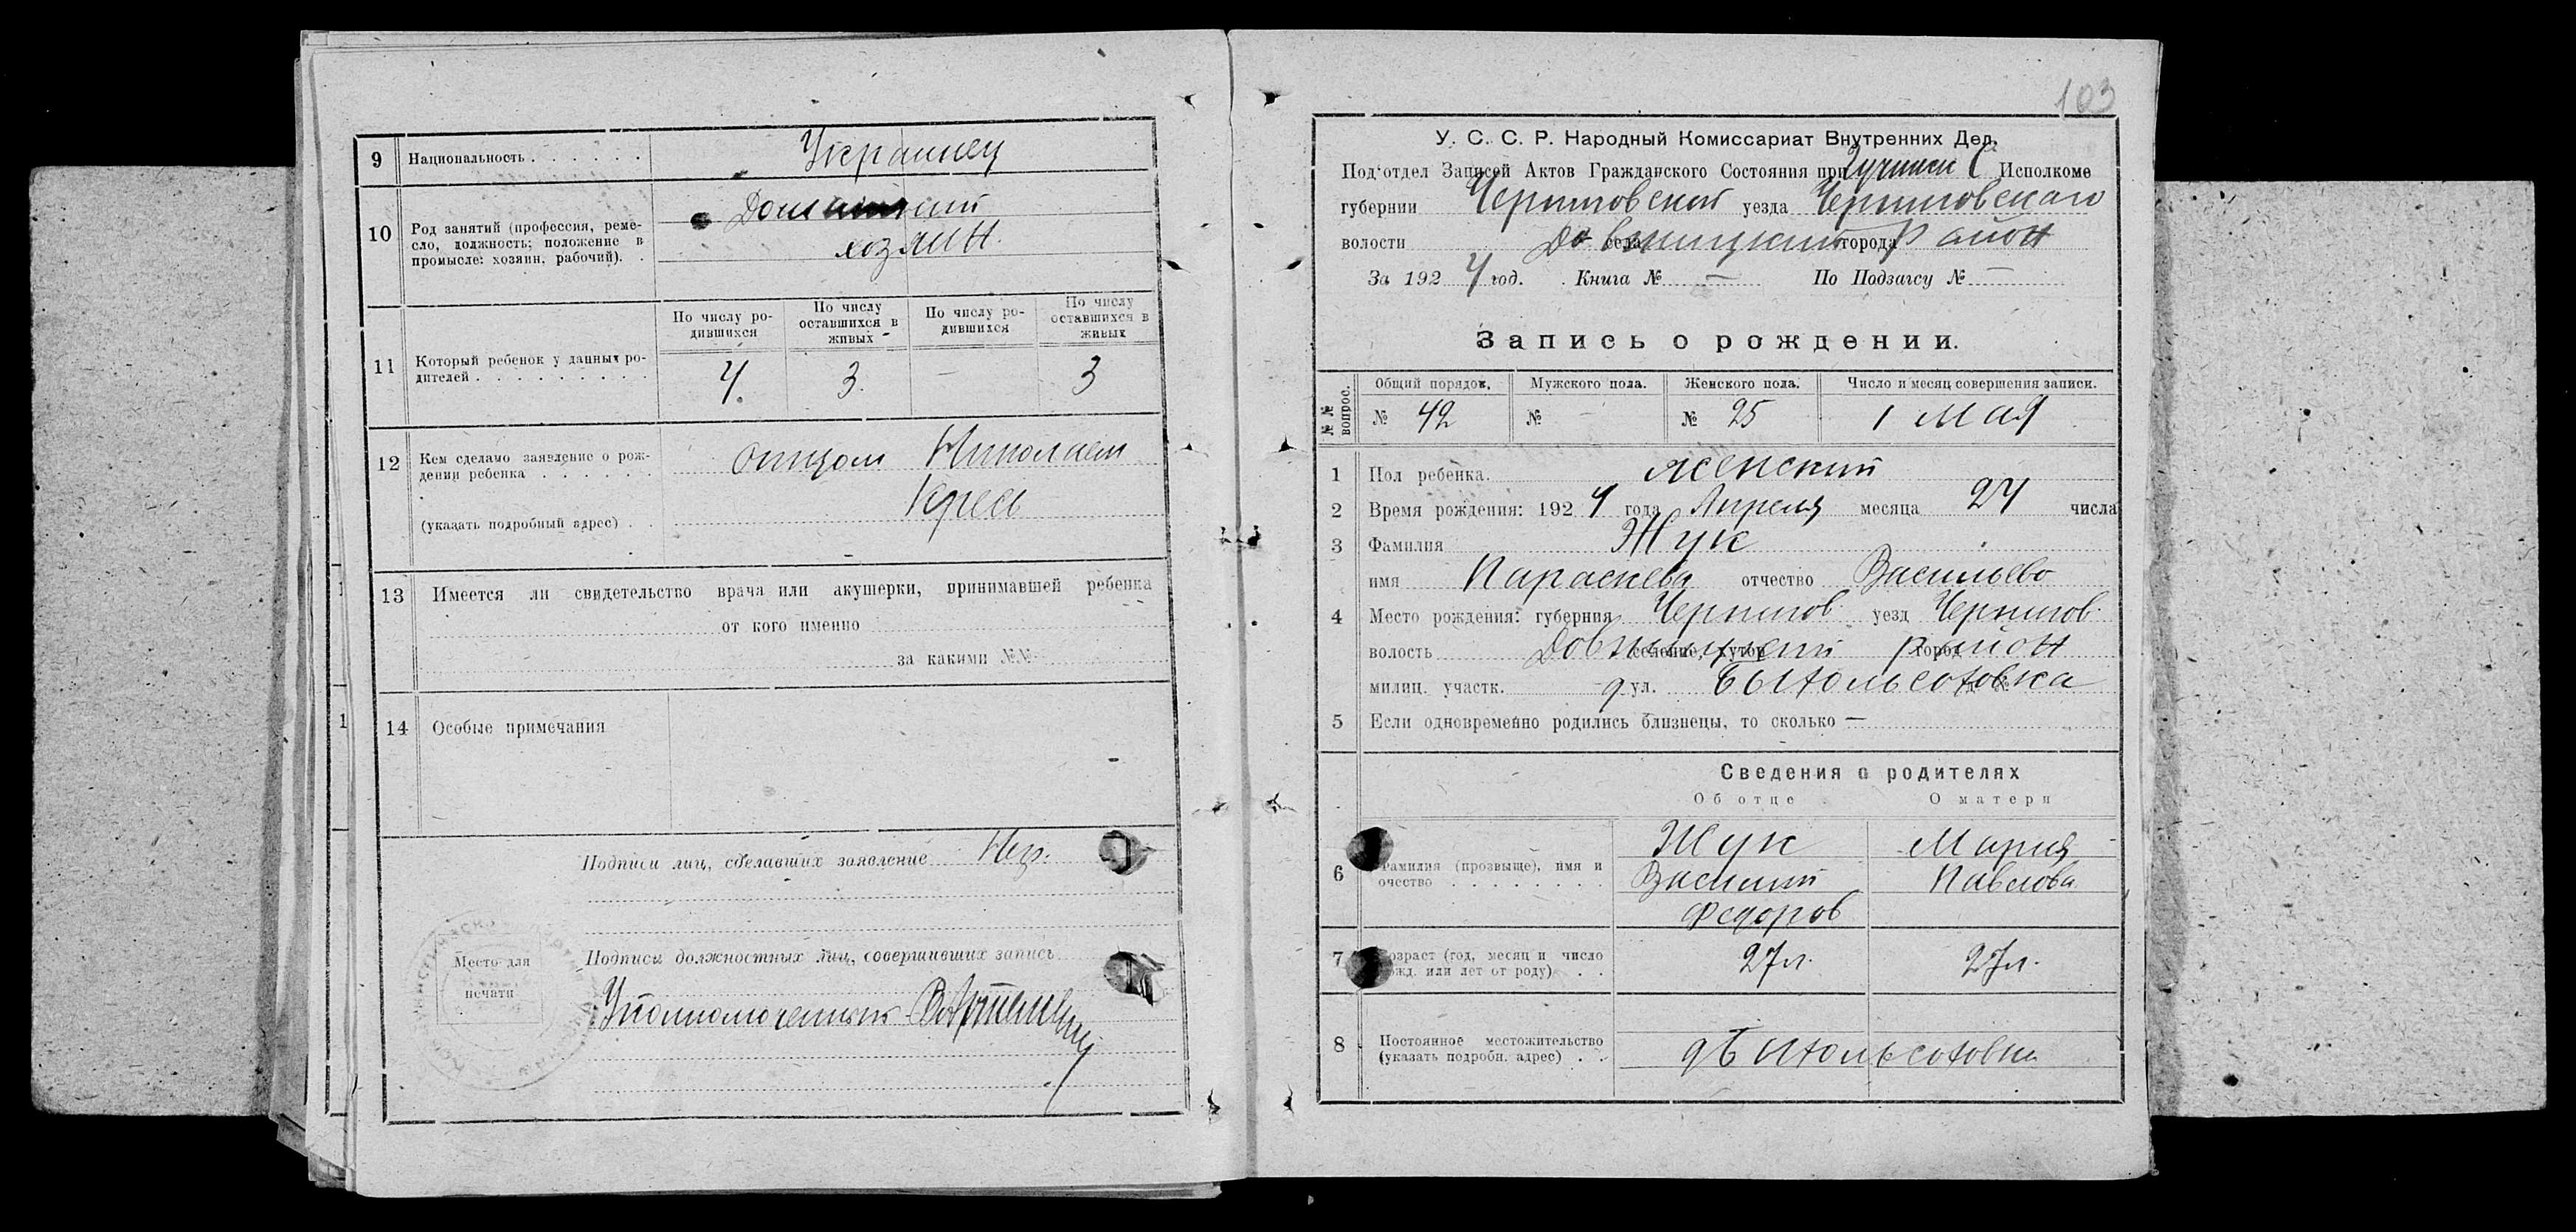 9 Национальность . . . . . . Украинец
10 Род занятий (профессия, реме-
сло, должность; положение в
промысле: хозяин, рабочий). .
Домашний
хозяин.
11 Который ребенок у данных ро-
дителей . . . . . . . . .
По числу ро-
дившихся
По числу
оставшихся в
живых
По числу ро-
дившихся
По числу
оставшихся в
живых
4. 3. — 3
12 Кем сделано заявление о рож-
дении ребенка . . . . . .
(указать подробный адрес) . .
Отцом Николаем
13 Имеется ли свидетельство врача или акушерки, принимавшей ребенка
от кого именно
за какими №№
14 Особые примечания
Подписи лиц, сделавших заявление
Подписи должностных лиц, совершивших запись
Место для
печати
Уполномоченный
103
У. С. С. Р. Народный Комиссариат Внутренних Дел.
Под'отдел Записей Актов Гражданского Состояния при С Исполкоме
губернии Черниговской уезда Черниговскаго
волости села города район
За 1924 год. Книга № — По Подзагсу № —
Запись о рождении.
№№ вопрос.
Общий порядок. Мужского пола. Женского пола. Число и месяц совершения записи.
№ 42 № — № 25 1 мая
1 Пол ребенка. женский
2 Время рождения: 1924 года Апреля месяца 24 числа
3 Фамилия Жук
имя Параскева отчество Васильево
4 Место рождения: губерния Чернигов. уезд Чернигов.
волость селение, хутор город район
милиц. участк. ул.
5 Если одновременно родились близнецы, то сколько —
Сведения о родителях
Об отце О матери
6 Фамилия (прозвыще), имя и
очество . . . . . . . .
Жук
Василий
Федоров
Мария
Павлова
7 Возраст (год, месяц и число
рожд. или лет от роду) . .
27 л. 27 л.
8 Постоянное местожительство
(указать подробн. адрес) . .